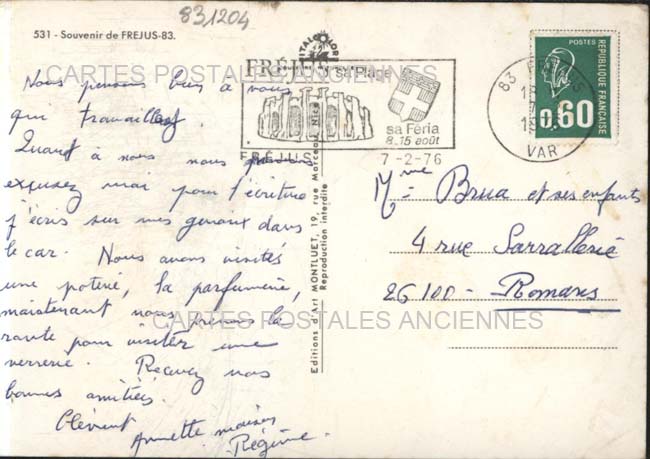 831204
531 - Souvenir de FREJUS-83.
ITALCOLOR
CARTES POSTALES ANCIENNES
FRÉJUS sa Plage
sa Féria
8_15 août
FRÉJUS
7-2-76
83 FREJUS
VAR
POSTES
REPUBLIQUE FRANÇAISE
0,60
Nous pensons bien à vous
qui travaillez.
Quand à nous nous
excusez moi pour l'écriture
j'écris sur mes genoux dans
le car. Nous avons visités
une poterie, la parfumerie,
maintenant nous prenons la
route pour visiter une
verrerie. Recevez nos
bonnes amitiés.
Clément
Annette
Régine.
Editions d'Art MONTLUET, 19, rue Marceau Nice
Reproduction interdite
Mme Brua et ses enfants
4 rue Sarrallerie
26100 - Romans
CARTES POSTALES ANCIENNES